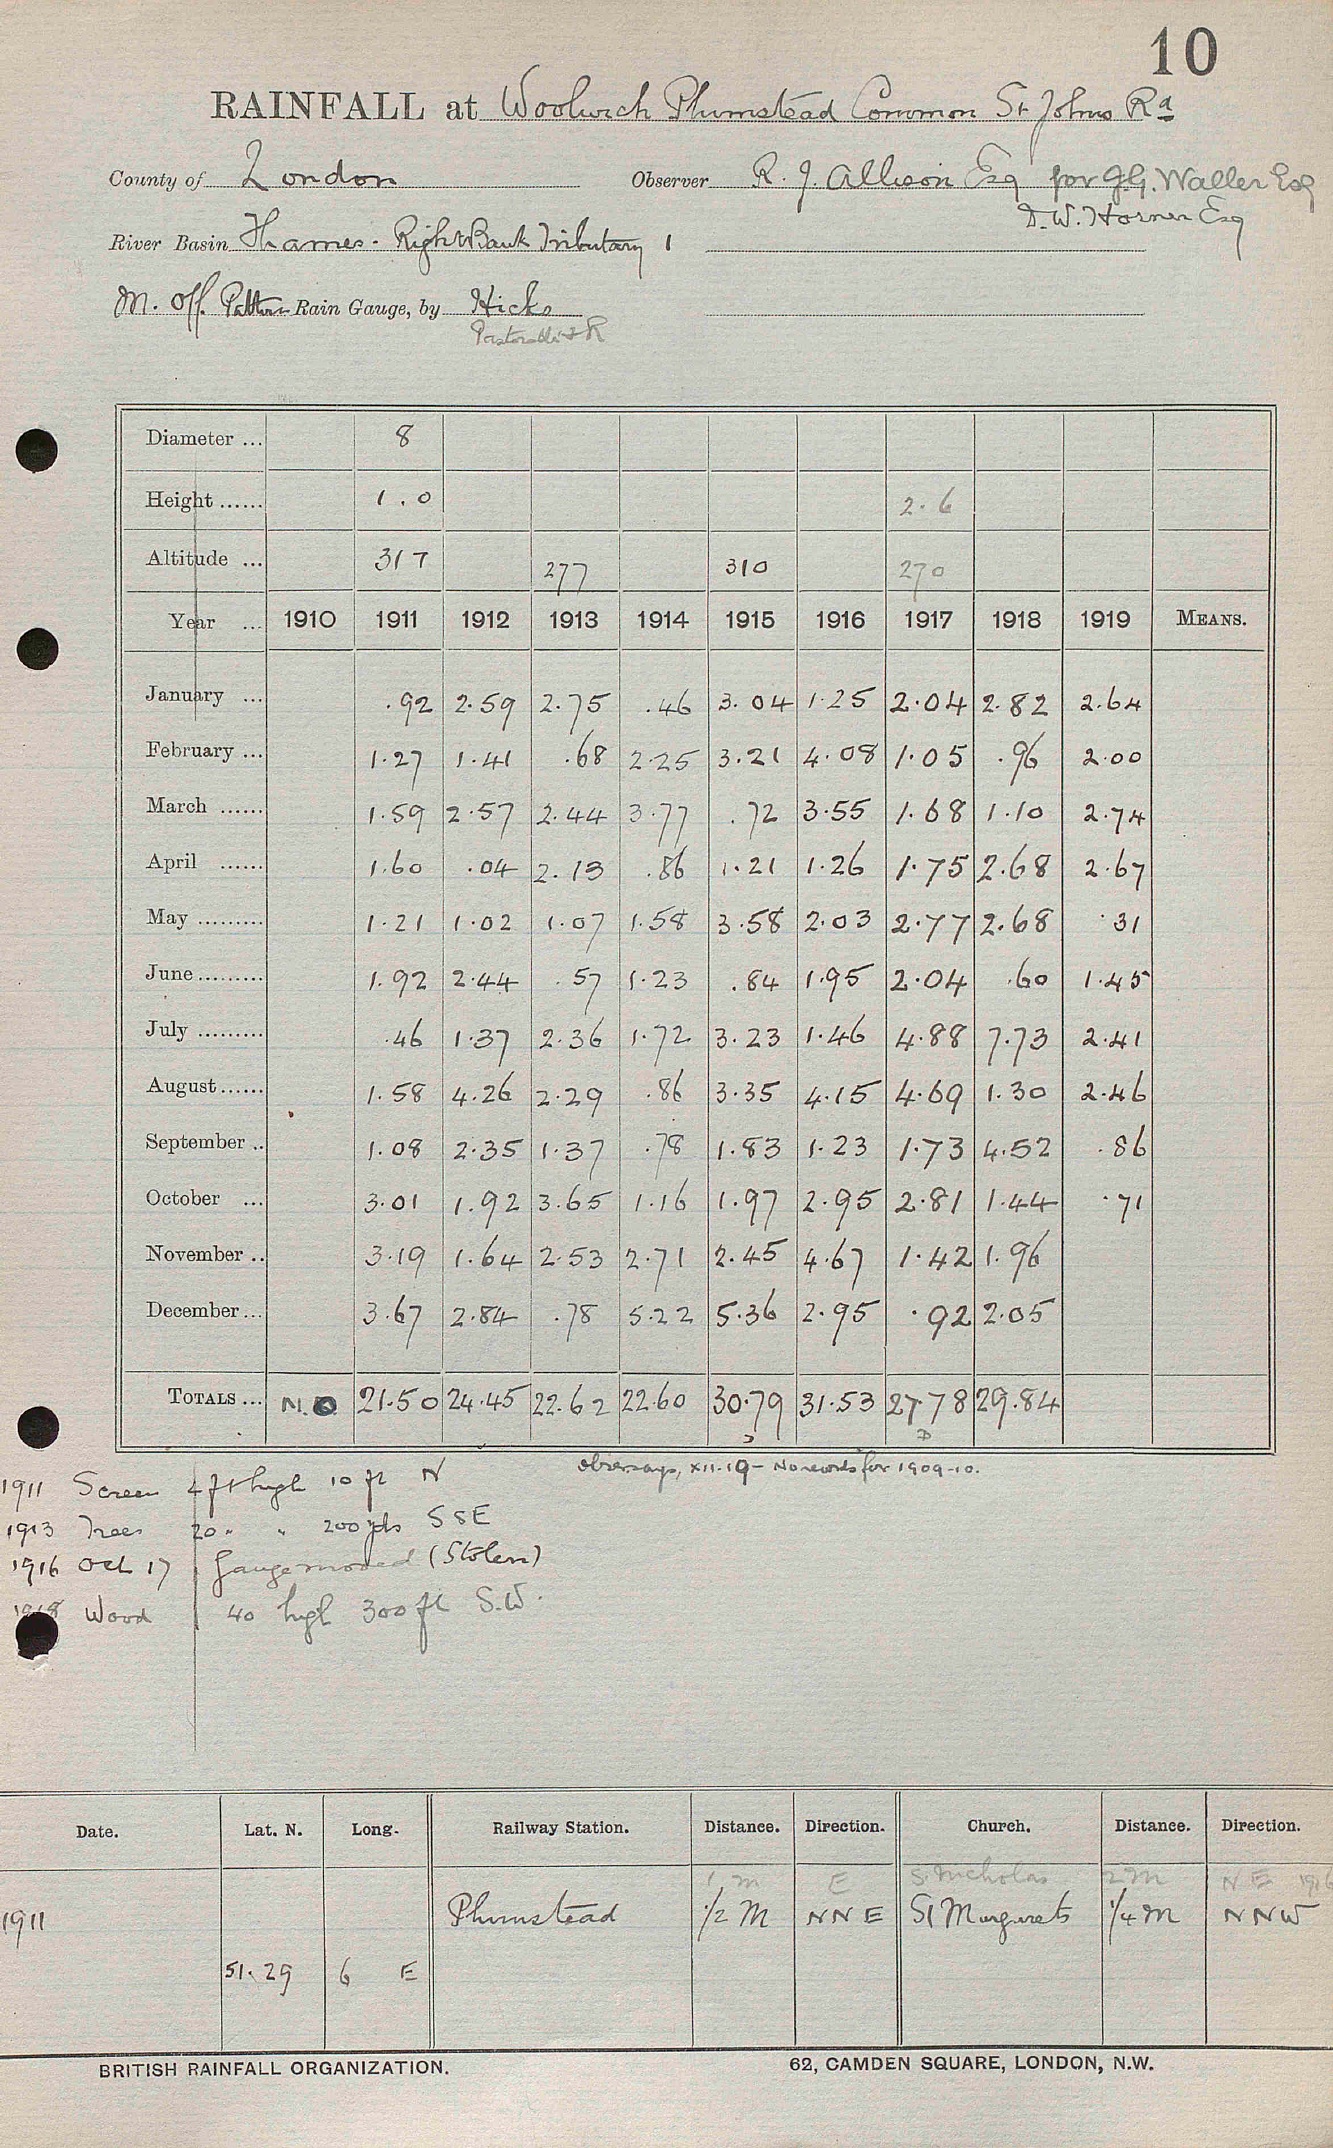 10
RAINFALL at Woolwich Plumstead Common St Johns Rd
County of London Observer R. J. Allison Esq for J.G. Waller Esq
D.W. Horner Esq
River Basin Thames - Right Bank Tributary 1
M. Off. Pattern Rain Gauge, by Hicks
Pastorelli & R
Diameter ... 8
Height ...... 1.0 2.6
Altitude ... 317 277 310 270
Year ... 1910 1911 1912 1913 1914 1915 1916 1917 1918 1919 MEANS.
January ... .92 2.59 2.75 .46 3.04 1.25 2.04 2.82 2.64
February ... 1.27 1.41 .68 2.25 3.21 4.08 1.05 .96 2.00
March ...... 1.59 2.57 2.44 3.77 .72 3.55 1.68 1.10 2.74
April ...... 1.60 .04 2.13 .86 1.21 1.26 1.75 2.68 2.67
May ......... 1.21 1.02 1.07 1.58 3.58 2.03 2.77 2.68 .31
June ......... 1.92 2.44 .57 1.23 .84 1.95 2.04 .60 1.45
July ......... .46 1.37 2.36 1.72 3.23 1.46 4.88 7.73 2.41
August ...... 1.58 4.26 2.29 .86 3.35 4.15 4.69 1.30 2.46
September .. 1.08 2.35 1.37 .78 1.83 1.23 1.73 4.52 .86
October ... 3.01 1.92 3.65 1.16 1.97 2.95 2.81 1.44 .71
November .. 3.19 1.64 2.53 2.71 2.45 4.67 1.42 1.96
December ... 3.67 2.84 .78 5.22 5.36 2.95 .92 2.05
TOTALS ... N.O. 21.50 24.45 22.62 22.60 30.79 31.53 27.78 29.84
D
Obsr says, XII.19 - No records for 1909-10.
1911 Screen 4 ft high 10 ft N
1913 Trees 20 " " 200 yds SSE
1916 Oct 17 Gauge moved (Stolen)
1918 Wood 40 high 300 ft S.W.
Date. Lat. N. Long. Railway Station. Distance. Direction. Church. Distance. Direction.
1 m E S. Nicholas 2 m NE 1916
1911 Plumstead 1/2 M NNE St Margarets 1/4 M NNW
51.29 6 E
BRITISH RAINFALL ORGANIZATION. 62, CAMDEN SQUARE, LONDON, N.W.